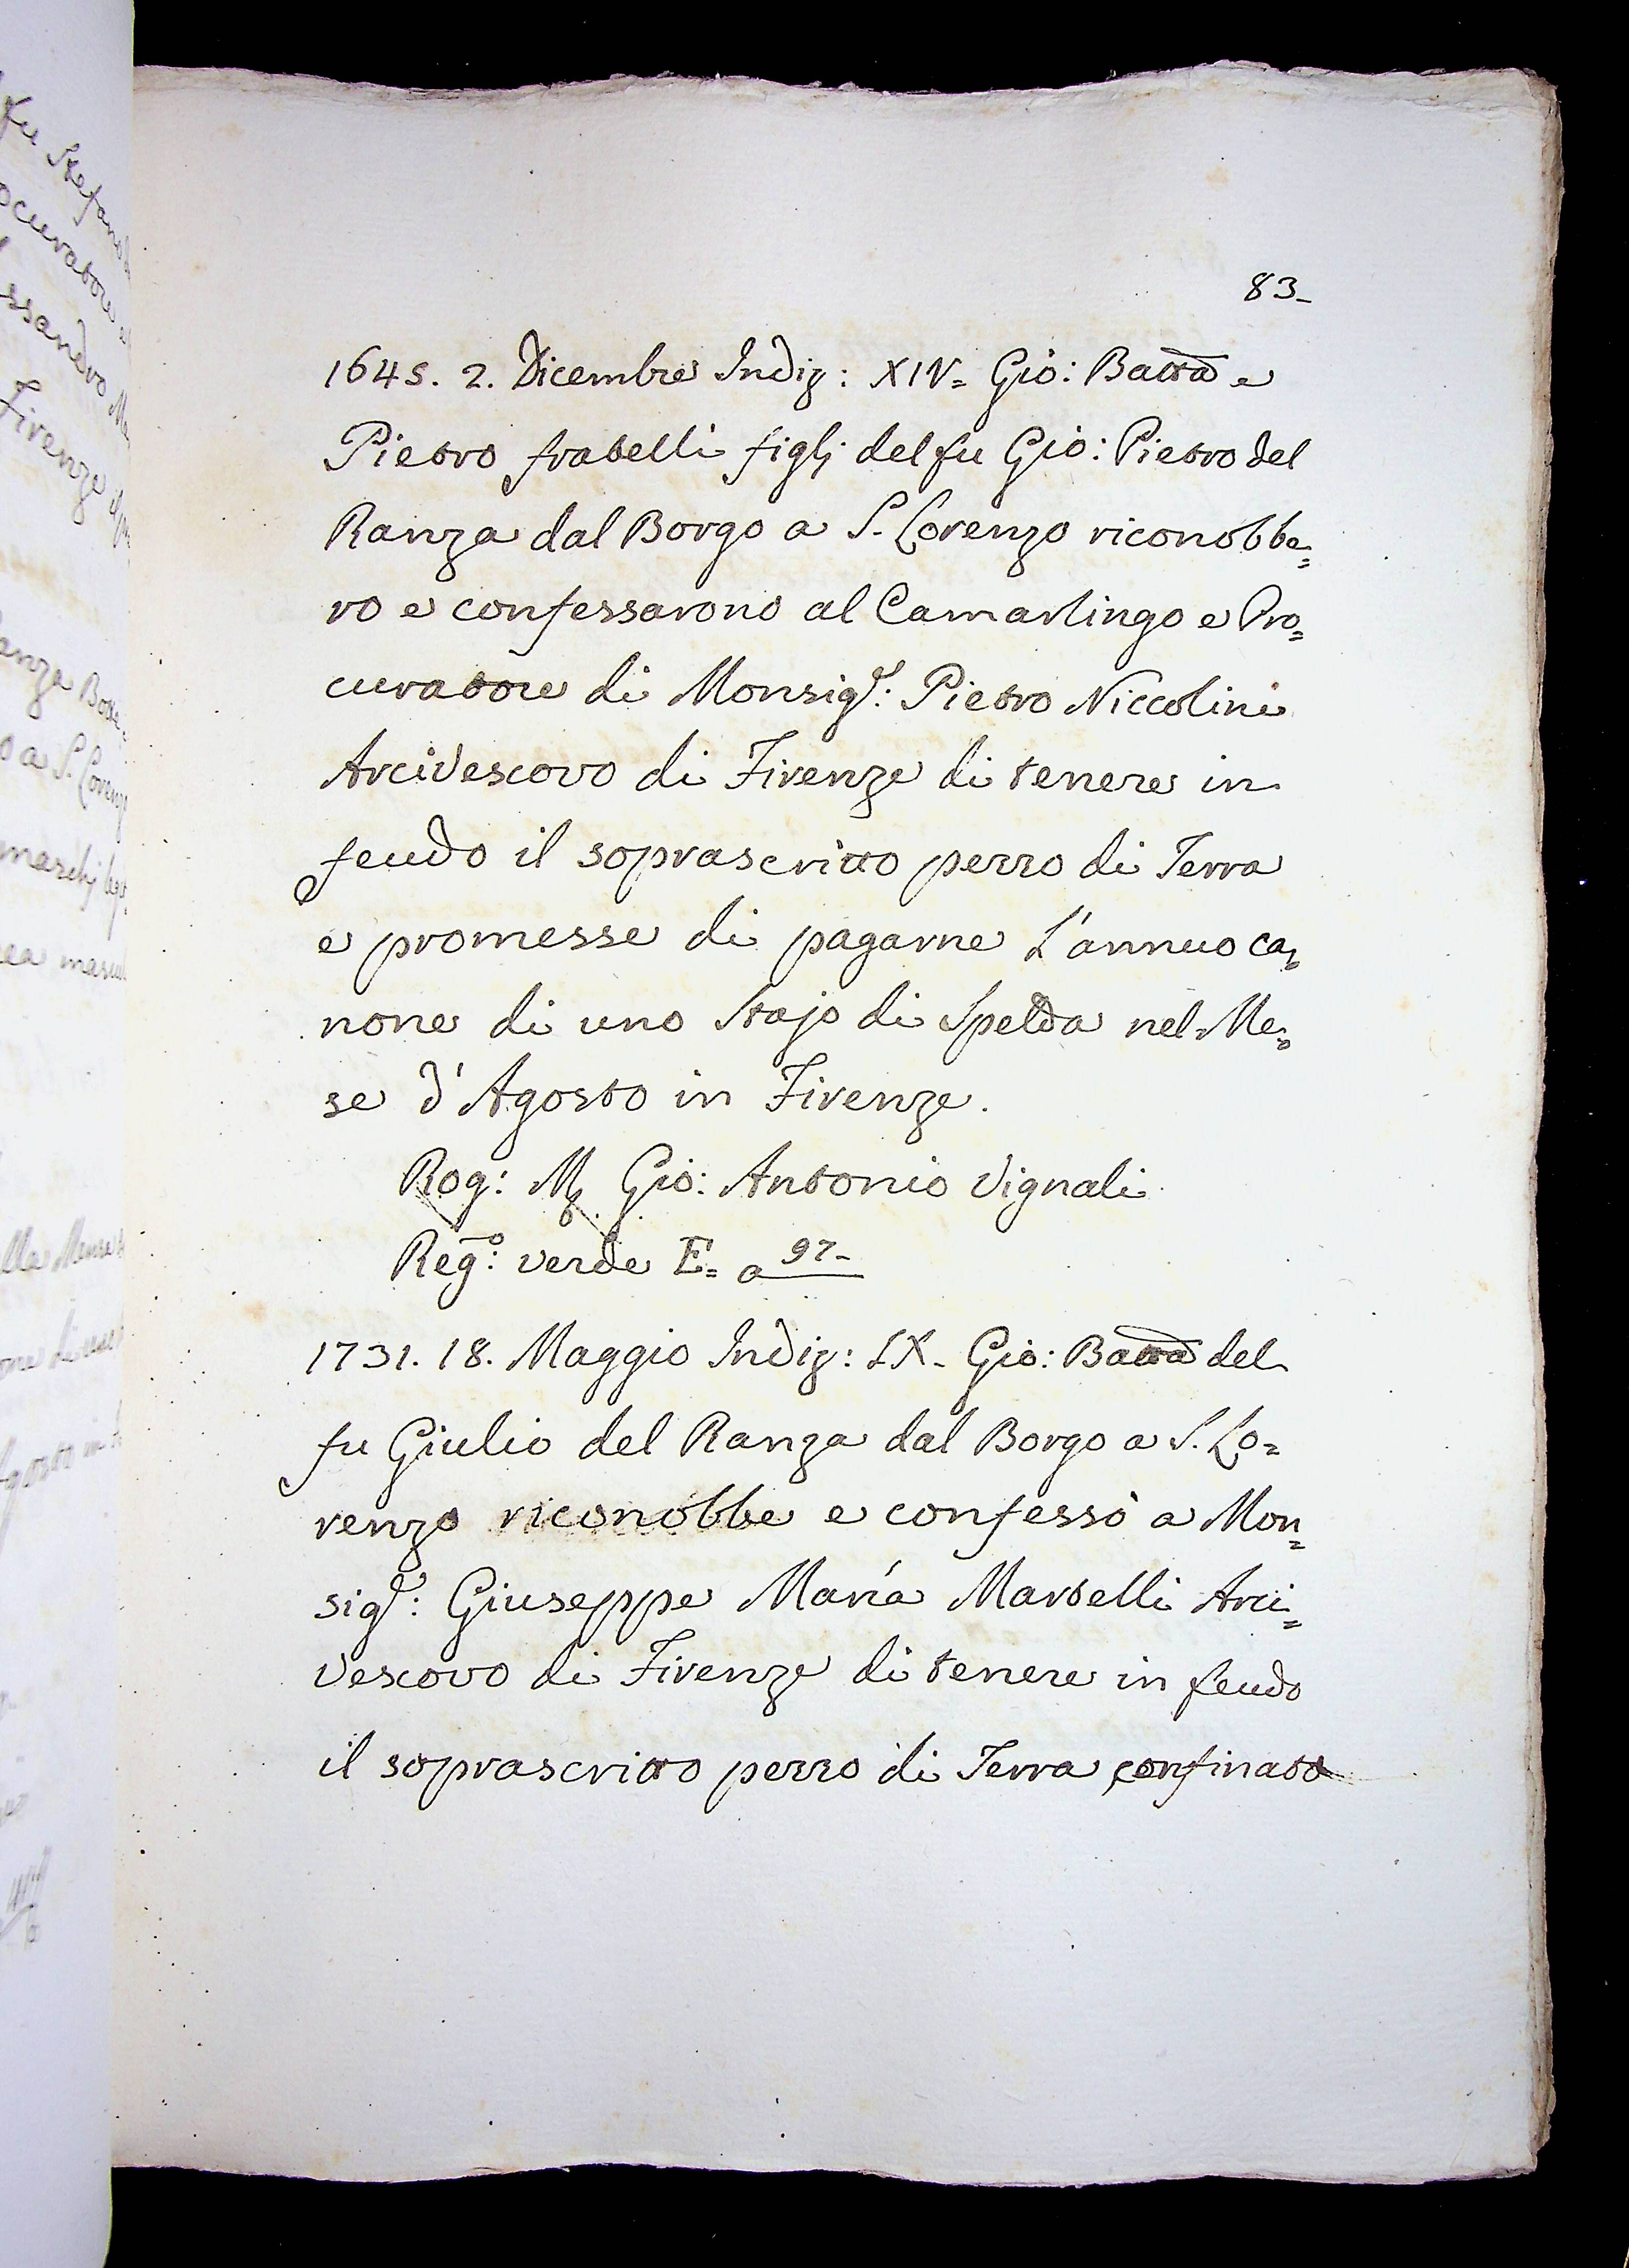 83-
1645. 2. Dicembre Indiz: XIV= Gio: Batta e
Pietro fratelli figlj del fu Gio: Pietro del
Ranza dal Borgo a S. Lorenzo riconobbe=
ro e confessarono al Camarlingo e Pro=
curatore di Monsigr: Pietro Niccolini
Arcivescovo di Firenze di tenere in
feudo il soprascritto pezzo di Terra
e promesse di pagarne L'annuo ca=
none di uno Stajo di Spelda nel Me=
se d'Agosto in Firenze.
Rog: Mr. Gio: Antonio Vignali
Rego: verde E= a 97-
1731. 18. Maggio Indiz: IX- Gio: Batta del
fu Giulio del Ranza dal Borgo a S. Lo=
renzo riconobbe e confessò a Mon=
sigr: Giuseppe Maria Martelli Arci=
vescovo di Firenze di tenere in feudo
il soprascritto pezzo di Terra confinato